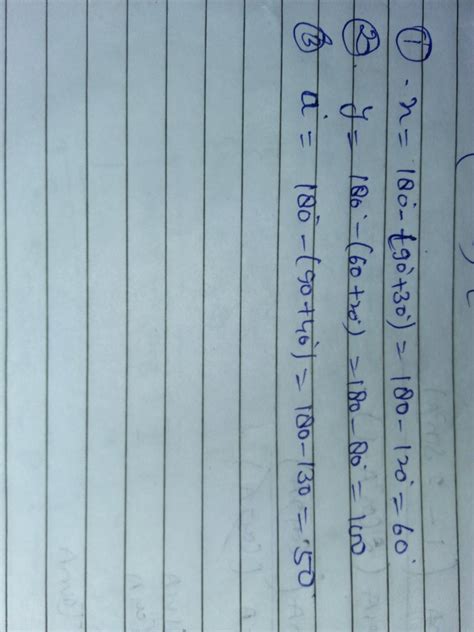 ① . x = 180° - (90° + 30°) = 180 - 120° = 60°
② . y = 180° - (60 + 20°) = 180 - 80° = 100
③ a = 180° - (90 + 40°) = 180 - 130 = 50